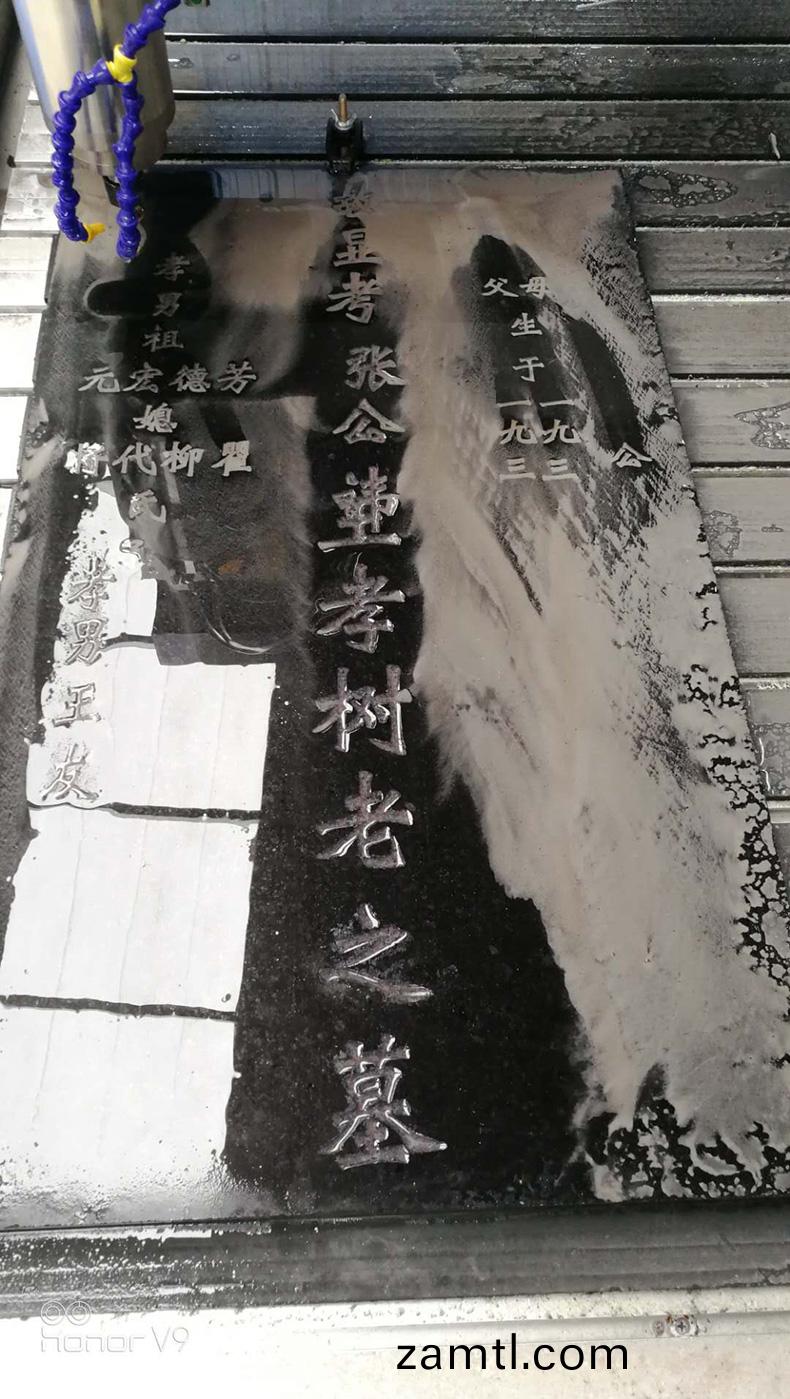 父母
生
于
一一
九九
三三
公
显
考
张
公
孝
树
老
之
墓
孝
男
祖
元宏德芳
媳
代柳瞿
氏
孝
男
王
友
honor V9
zamtl.com